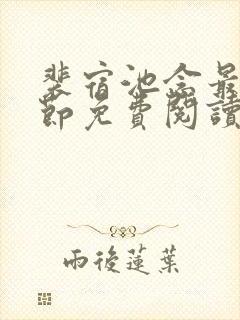 裴宿池念最
節免費閱讀
雨後蓮葉